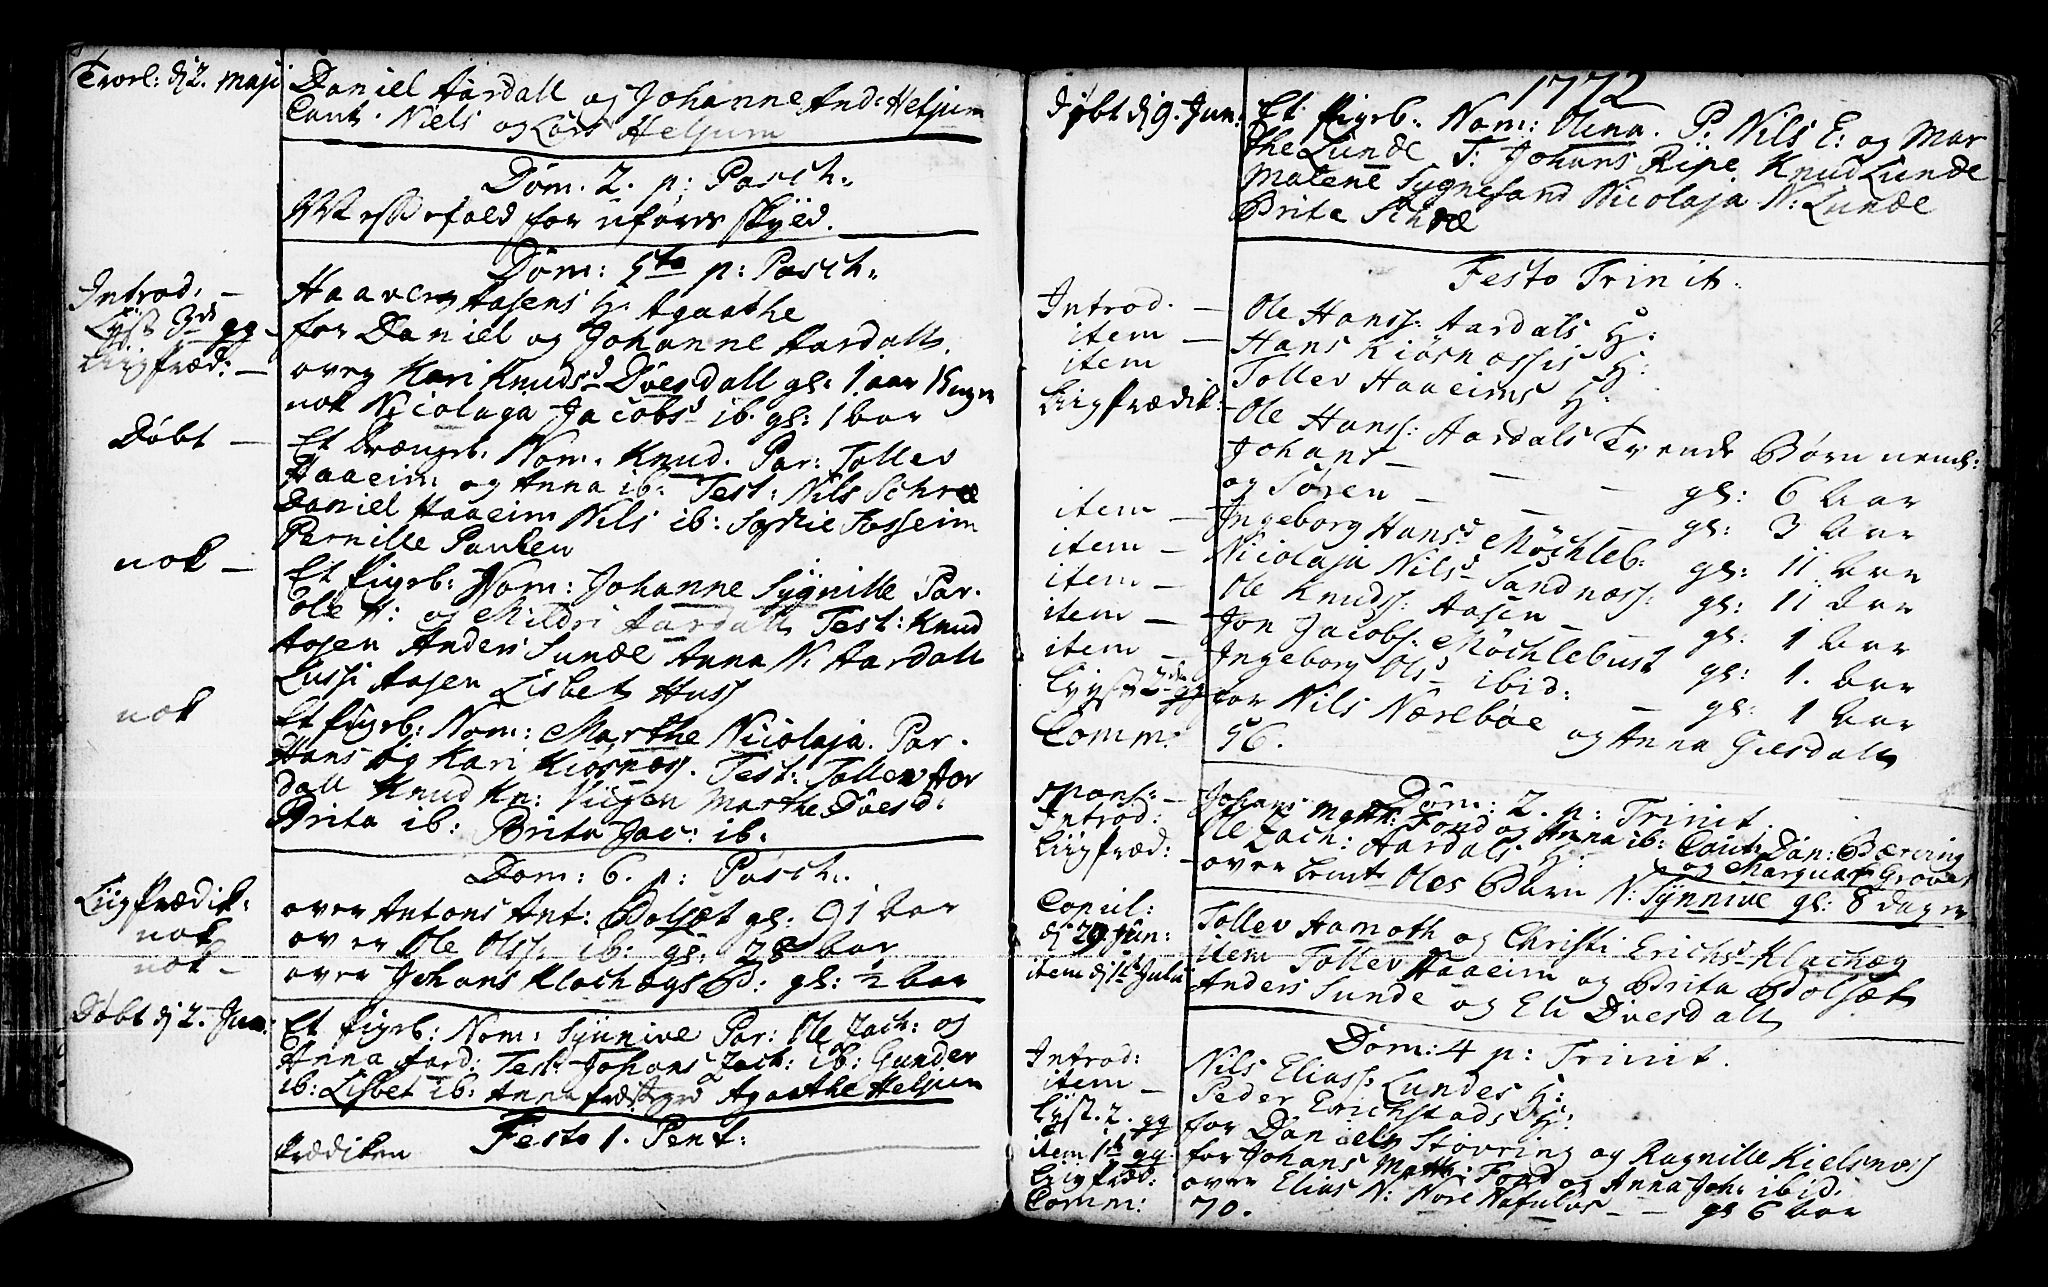 Trorl: d 2. Maji Daniel Aardall og Johanne And: Heljum
Caut. Niels og Lars Heljum
Dom. 2. p: Pasch:
Messefald for uføres skyld.
Dom: 5te p: Pasch:
Introd: — Haavers Aasens H: Agaathe
Lyst 3de gg — for Daniel og Johanne Aardall
Liigpræd: — over Kari Knudsd Dvesdall gl: 1 aar 15 uger
nok Nicolaya Jacobsd ib. gl: 1 aar
Døbt — Et Drængb. Nom. Knud. Par: Tollev
Haaeim og Anna ib: Test: Nils Schree
Daniel Haaeim Nils ib: Sophie Fosseim
Pernille Paulsen
nok — Et Pigeb: Nom: Johanne Sygnille Par.
Ole H: og Mildri Aardall Test: Knud
Aasen Anders Sunde Anna N: Aardall
Lussi Aasen Lisbet Huss
nok Et Pigeb: Nom: Marthe Nicolaja. Par.
Hans og Kari Kiøsnæs. Test: Tollev Aar
dall Knud Kn: Viigen Marthe Dvesd:
Brita ib: Brita Jac: ib.
Dom: 6. p: Pasch:
Liigprædik: over Antons Ant: Bolsæt gl: 91 aar
nok over Ole Olss: ib: gl: 28 aar
nok — over Johans Klachægs B: gl: ½ aar
Døbt d 2. Jun: Et Pigeb: Nom: Synnive Par: Ole Zach: og
Anna Aard: Test: Johans Zach: ib: Gunder
ib: Lisbet ib: Anna Agaathe Heljum
Festo 1. Pent:
Prædiken
1772
Døbt d 9. Jun: Et Pigeb: Nom: Olina. P: Nils E: og Mar
the Lunde T: Johans Ripe Knud Lunde
Malene Sygnesand Nicolaja N: Lunde
Brite Schree
Festo Trinit.
Introd. — Ole Hanss: Aardals H:
item — Hans Kiøsnæsses H:
item Tollev Haaeims H:
Liigprædik: Ole Hanss: Aardals Tvende Børn neml:
Johans — — — gl: 6 aar
og Søren — — — gl: 3 aar
item — Ingeborg Hansd Møchleb: gl: 11 aar
item — Nicolaja Nilsd Sandnæss: gl: 11 aar
item — Ole Knudss: Aasen — gl: 1 aar
item — Jon Jacobs: Møchlebust gl: 1. aar
item — Ingeborg Olsd ibid: — gl: 1 aar
Lyst gg for Nils Nærebøe og Anna Giesdall
Comm: 56.
Dom: 2. p: Trinit.
Spons: — Johans Matth: Fond og Anna ib: Caut: Dan: Bærving
og Marqvar Grover
Introd: Ole Zach: Aardals H:
Liigpræd: — over bemte Oles Barn N: Synnive gl: 8 dager
Copul:
d 29 Jun: Tollev Aamoth og Christi Erichsd Klachæg
item Tollev Haaeim og Brita Bolsæt
item d 1ste Julii Anders Sunde og Eli Dvesdall
Dom: 4 p: Trinit.
Introd: Nils Eliass: Lundes H:
item — Peder Erichstads H:
Lyst. 2. gg for Daniel Støvring og Ragnille Kielsnæs
item 1ste gg for Johans Matth: Fond og Anna Joh: ibid.
Liigpræd: over Elias N: Nore — — gl 6 aar
Comm: 70.